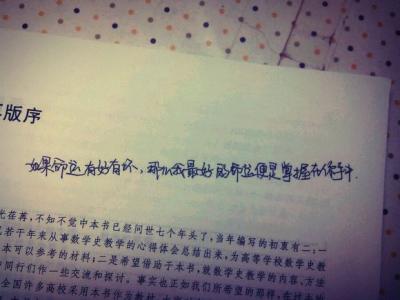 版序
如果命运有好有坏，那么我最好的命运便是掌握在你手中.
光荏苒，不知不觉中本书已经问世七个年头了，当年编写的初衷有二：一
若干年来从事数学史教学的心得体会总结出来，为高等学校数学史教
本可以参考的材料；二是希望借助于本书，就数学史教学的内容、方法
同行们作一些交流和探讨。事实也正如我们所希望的那样，
全国许多高校采用本书作为教材